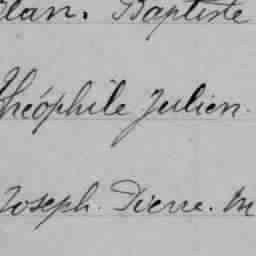 Jean. Baptiste
Théophile Julien.
Joseph. Pierre. M